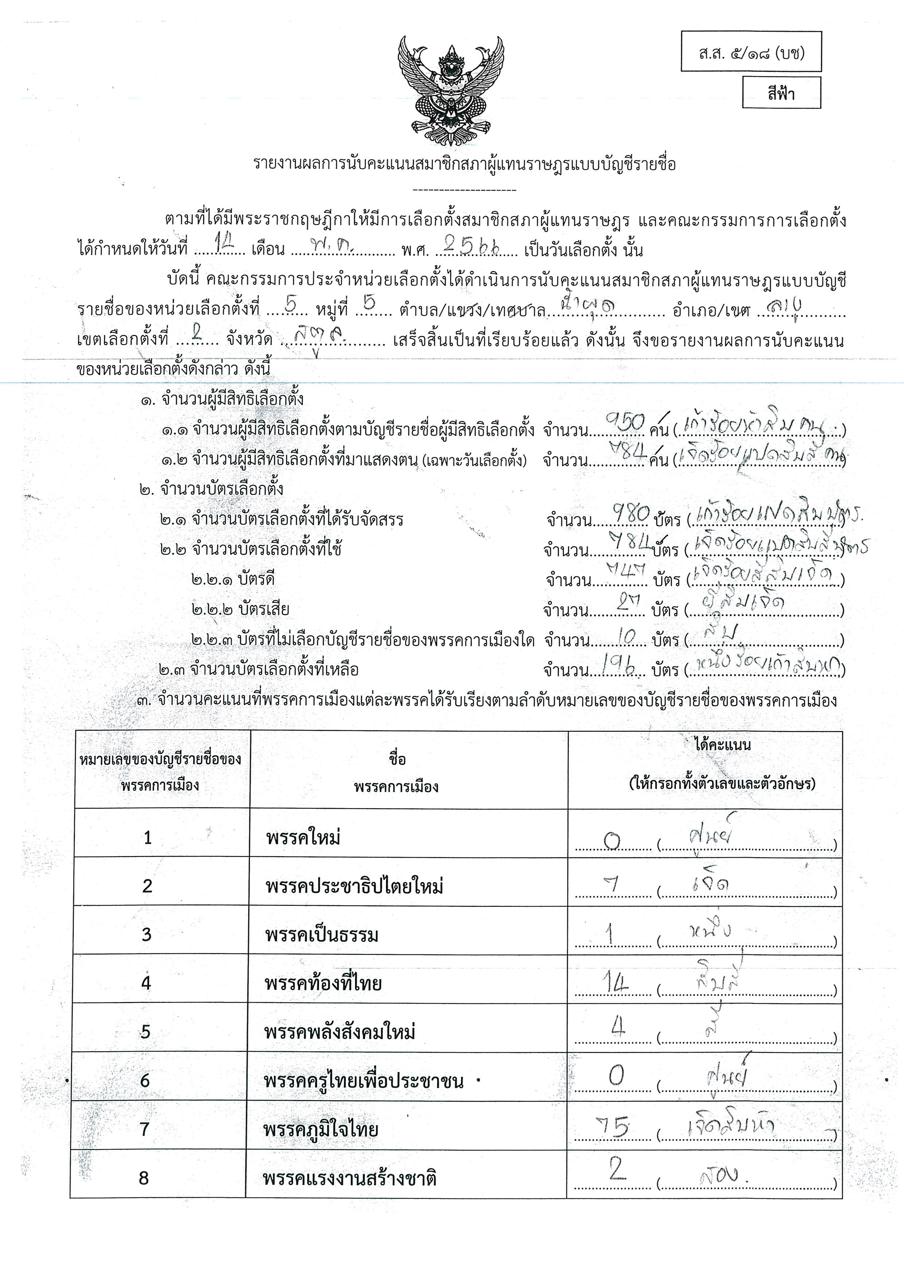 ส.ส. ๕/๑๘ (บช)
สีฟ้า
รายงานผลการนับคะแนนสมาชิกสภาผู้แทนราษฎรแบบบัญชีรายชื่อ
--------------------
ตามที่ได้มีพระราชกฤษฎีกาให้มีการเลือกตั้งสมาชิกสภาผู้แทนราษฎร และคณะกรรมการการเลือกตั้ง
ได้กำหนดให้วันที่ 14 เดือน พ.ค. พ.ศ. 2566 เป็นวันเลือกตั้ง นั้น
บัดนี้ คณะกรรมการประจำหน่วยเลือกตั้งได้ดำเนินการนับคะแนนสมาชิกสภาผู้แทนราษฎรแบบบัญชี
รายชื่อของหน่วยเลือกตั้งที่ 5 หมู่ที่ 5 ตำบล/แขวง/เทศบาล น้ำผุด อำเภอ/เขต ละงู
เขตเลือกตั้งที่ 2 จังหวัด สตูล เสร็จสิ้นเป็นที่เรียบร้อยแล้ว ดังนั้น จึงขอรายงานผลการนับคะแนน
ของหน่วยเลือกตั้งดังกล่าว ดังนี้
๑. จำนวนผู้มีสิทธิเลือกตั้ง
๑.๑ จำนวนผู้มีสิทธิเลือกตั้งตามบัญชีรายชื่อผู้มีสิทธิเลือกตั้ง จำนวน 950 คน (เก้าร้อยห้าสิบคน)
๑.๒ จำนวนผู้มีสิทธิเลือกตั้งที่มาแสดงตน (เฉพาะวันเลือกตั้ง) จำนวน 784 คน (เจ็ดร้อยแปดสิบสี่คน)
๒. จำนวนบัตรเลือกตั้ง
๒.๑ จำนวนบัตรเลือกตั้งที่ได้รับจัดสรร จำนวน 980 บัตร (เก้าร้อยแปดสิบบัตร.
๒.๒ จำนวนบัตรเลือกตั้งที่ใช้ จำนวน 784 บัตร (เจ็ดร้อยแปดสิบสี่บัตร
๒.๒.๑ บัตรดี จำนวน 747 บัตร (เจ็ดร้อยสี่สิบเจ็ด)
๒.๒.๒ บัตรเสีย จำนวน 27 บัตร (ยี่สิบเจ็ด)
๒.๒.๓ บัตรที่ไม่เลือกบัญชีรายชื่อของพรรคการเมืองใด จำนวน 10 บัตร (สิบ)
๒.๓ จำนวนบัตรเลือกตั้งที่เหลือ จำนวน 196 บัตร (หนึ่งร้อยเก้าสิบหก)
๓. จำนวนคะแนนที่พรรคการเมืองแต่ละพรรคได้รับเรียงตามลำดับหมายเลขของบัญชีรายชื่อของพรรคการเมือง
หมายเลขของบัญชีรายชื่อของพรรคการเมือง ชื่อพรรคการเมือง ได้คะแนน (ให้กรอกทั้งตัวเลขและตัวอักษร)
1 พรรคใหม่ 0 (ศูนย์)
2 พรรคประชาธิปไตยใหม่ 7 (เจ็ด)
3 พรรคเป็นธรรม 1 (หนึ่ง)
4 พรรคท้องที่ไทย 14 (สิบสี่)
5 พรรคพลังสังคมใหม่ 4 (สี่)
6 พรรคครูไทยเพื่อประชาชน 0 (ศูนย์)
7 พรรคภูมิใจไทย 75 (เจ็ดสิบห้า)
8 พรรคแรงงานสร้างชาติ 2 (สอง.)